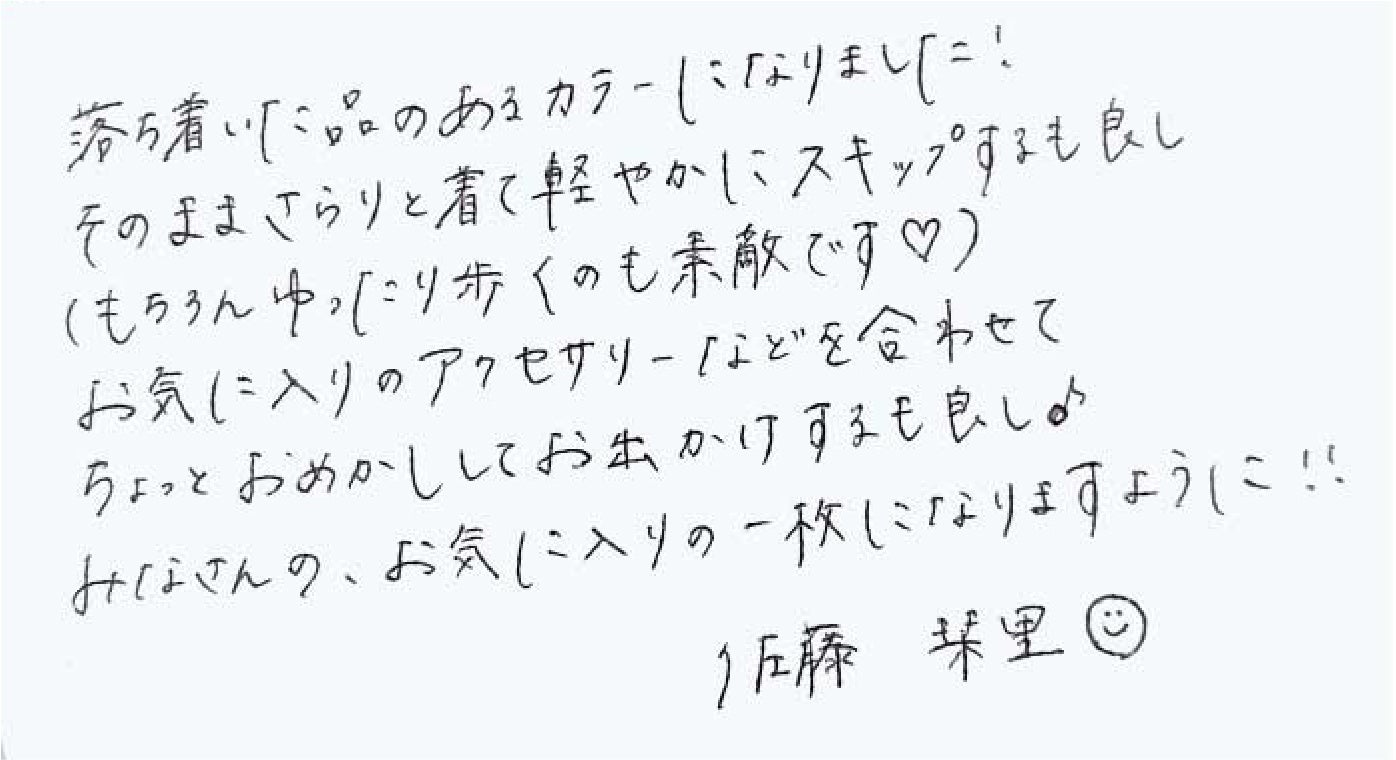 落ち着いた品のあるカラーになりました！
そのままさらりと着て軽やかにスキップするも良し
（もちろんゆったり歩くのも素敵です♡）
お気に入りのアクセサリーなどを合わせて
ちょっとおめかししてお出かけするも良し♪
みなさんの、お気に入りの一枚になりますように！！
佐藤 栞里